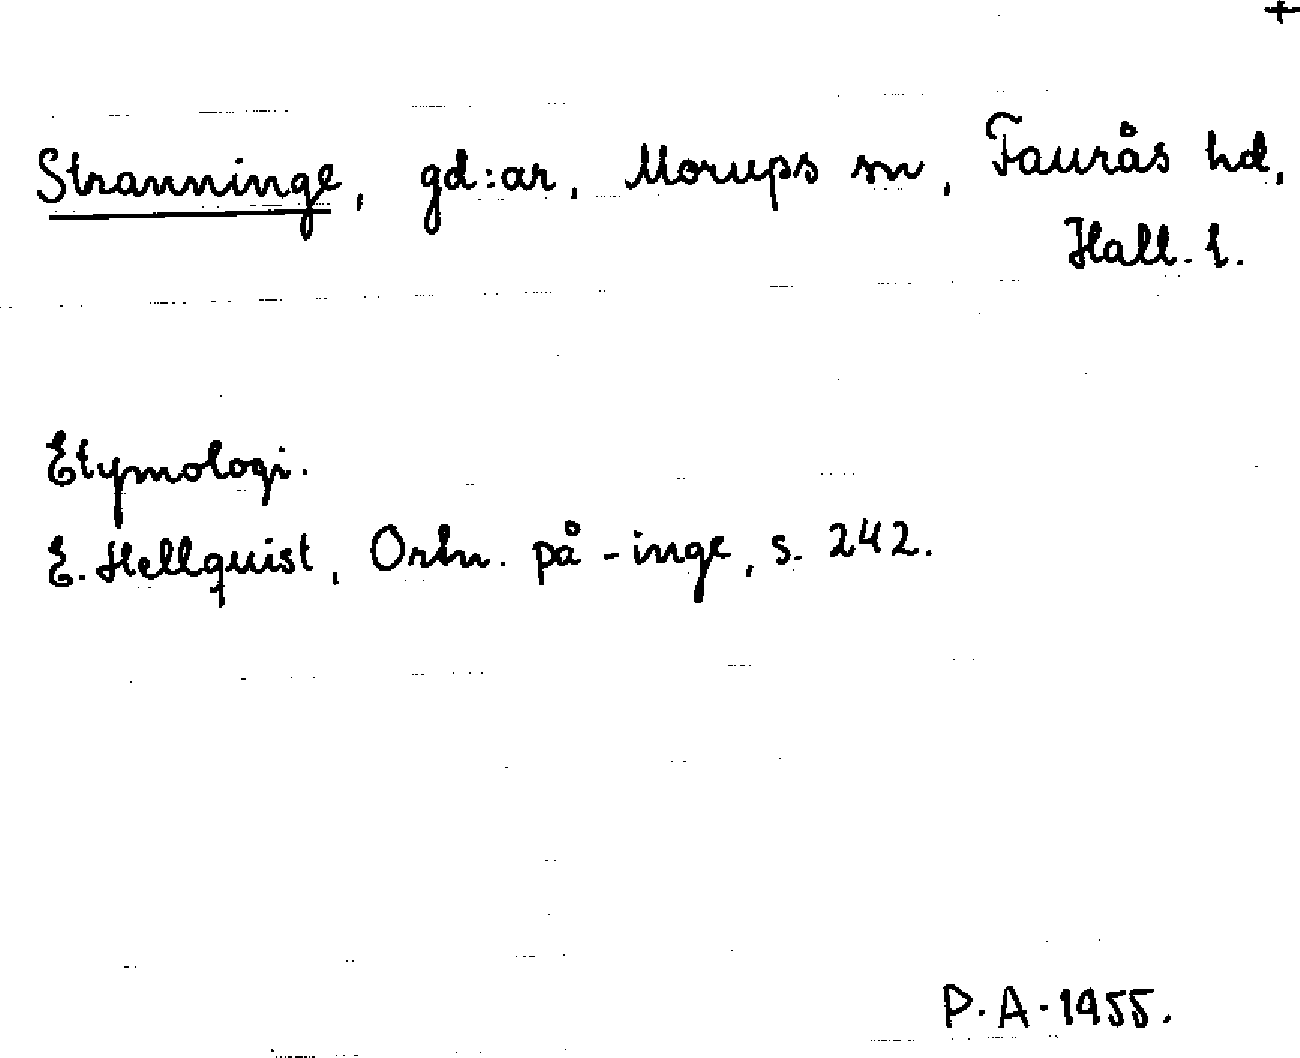 +
Stranninge, gd:ar, Morups sn, Faurås hd,
Hall. l.
Etymologi.
E. Hellquist, Ortn. på -inge, s. 242.
P.A. 1955.